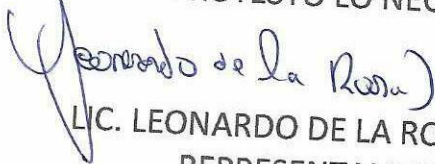 LO NEC
Leonardo de la Rosa
LIC. LEONARDO DE LA RO